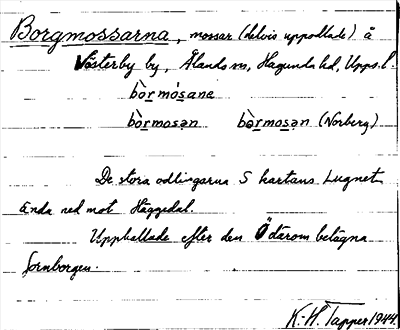 Borgmossarna, mossar (delvis uppodlade) å
Västerby by, Ålands sn, Hagunda hd, Upps. l.
bòrmósane
bòrmosən bòrmosən (Norberg)
De stora odlingarna S kartans Lugnet
ända ned mot Häggedal.
Uppkallade efter den Ö därom belägna
fornborgen.
K.-H. Tapper 1944.